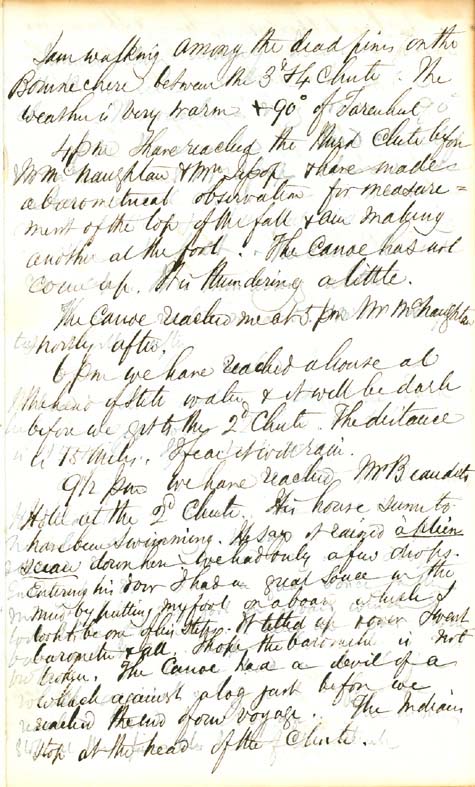 I am walking among the dead pines on the
Bonnechere between the 3d & 4 Chute. The
weather is very warm + 90° of Farenheit
4 pm I have reached the third Chute before
Mr McNaughtan & Mrs & have made
a barometrical observation for measure=
ment of the top of the fall & am making
another at the foot. The Canoe has not
come up. It is thundering a little.
The Canoe reached me at 5 pm Mr McNaughtan
shortly after.
6 pm we have reached a house at
the head of still water & it will be dark
before we get to the 2d Chute. The distance
is 15 miles. I fear it will rain.
9 1/2 pm we have reached Mr Beaudets
Hotel at the 2d Chute. His house seems to
have been swimming. He says it rained à plein
sceau down here. We had only a few drops.
Entering his door I had a great souce in the
mud by putting my foot on a board which I
took to be one of his steps. It tilted up & over I went
barometer & all. I hope the barometer is not
broken. The Canoe had a devil of a
whack against a log just before we
reached the end of our voyage. The Indians
stop at the head of the Chute.